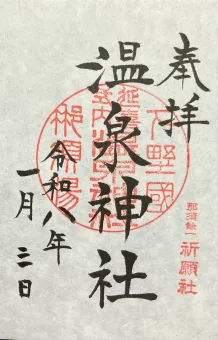 奉拝
温泉神社
令和八年
一月三日
下野國
那須湯
那須余一
祈願社